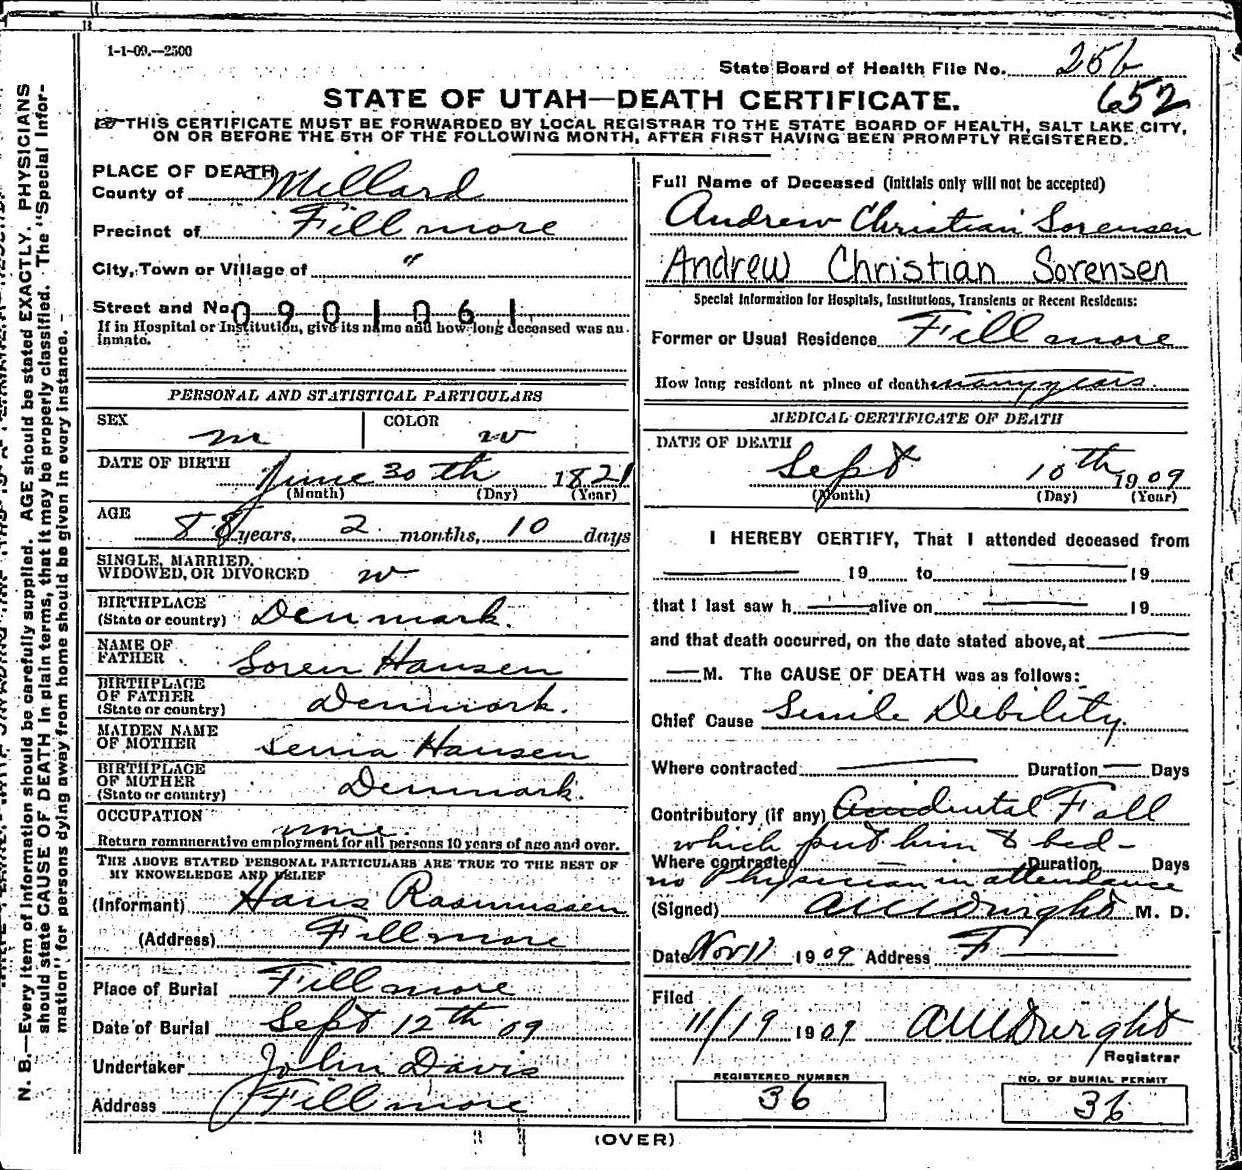 1-1-09.—2500
State Board of Health File No. 256
652
STATE OF UTAH—DEATH CERTIFICATE.
THIS CERTIFICATE MUST BE FORWARDED BY LOCAL REGISTRAR TO THE STATE BOARD OF HEALTH, SALT LAKE CITY,
ON OR BEFORE THE 5TH OF THE FOLLOWING MONTH, AFTER FIRST HAVING BEEN PROMPTLY REGISTERED.
PLACE OF DEATH
County of Millard
Precinct of Fillmore
City, Town or Village of "
Street and No. 0901061
If in Hospital or Institution, give its name and how long deceased was an
inmate.
PERSONAL AND STATISTICAL PARTICULARS
SEX m COLOR w
DATE OF BIRTH June 30th 1821
(Month) (Day) (Year)
AGE 88 years, 2 months, 10 days
SINGLE, MARRIED,
WIDOWED, OR DIVORCED w
BIRTHPLACE
(State or country) Denmark.
NAME OF
FATHER Soren Hansen
BIRTHPLACE
OF FATHER
(State or country) Denmark.
MAIDEN NAME
OF MOTHER Senia Hansen
BIRTHPLACE
OF MOTHER
(State or country) Denmark.
OCCUPATION none.
Return remunerative employment for all persons 10 years of age and over.
THE ABOVE STATED PERSONAL PARTICULARS ARE TRUE TO THE BEST OF
MY KNOWELEDGE AND BELIEF
(Informant) Hans Rasmussen
(Address) Fillmore
Place of Burial Fillmore
Date of Burial Sept 12th 09
Undertaker John Davis
Address Fillmore
Full Name of Deceased (initials only will not be accepted)
Andrew Christian Sorensen
Andrew Christian Sorensen
Special Information for Hospitals, Institutions, Transients or Recent Residents:
Former or Usual Residence Fillmore
How long resident at place of death many years.
MEDICAL CERTIFICATE OF DEATH
DATE OF DEATH
Sept 10th 1909
(Month) (Day) (Year)
I HEREBY CERTIFY, That I attended deceased from
19 to 19
that I last saw h alive on 19
and that death occurred, on the date stated above, at
M. The CAUSE OF DEATH was as follows:
Chief Cause Senile Debility.
Where contracted Duration Days
Contributory (if any) Accidental Fall
which put him to bed-
Where contracted Duration Days
no Physician in attendance
(Signed) M. D.
Date Nov 11 1909 Address F
Filed
11/19 1909
Registrar
REGISTERED NUMBER
36
NO. OF BURIAL PERMIT
36
(OVER)
N. B.—Every item of information should be carefully supplied. AGE should be stated EXACTLY. PHYSICIANS
should state CAUSE OF DEATH in plain terms, that it may be properly classified. The "Special Infor-
mation" for persons dying away from home should be given in every instance.